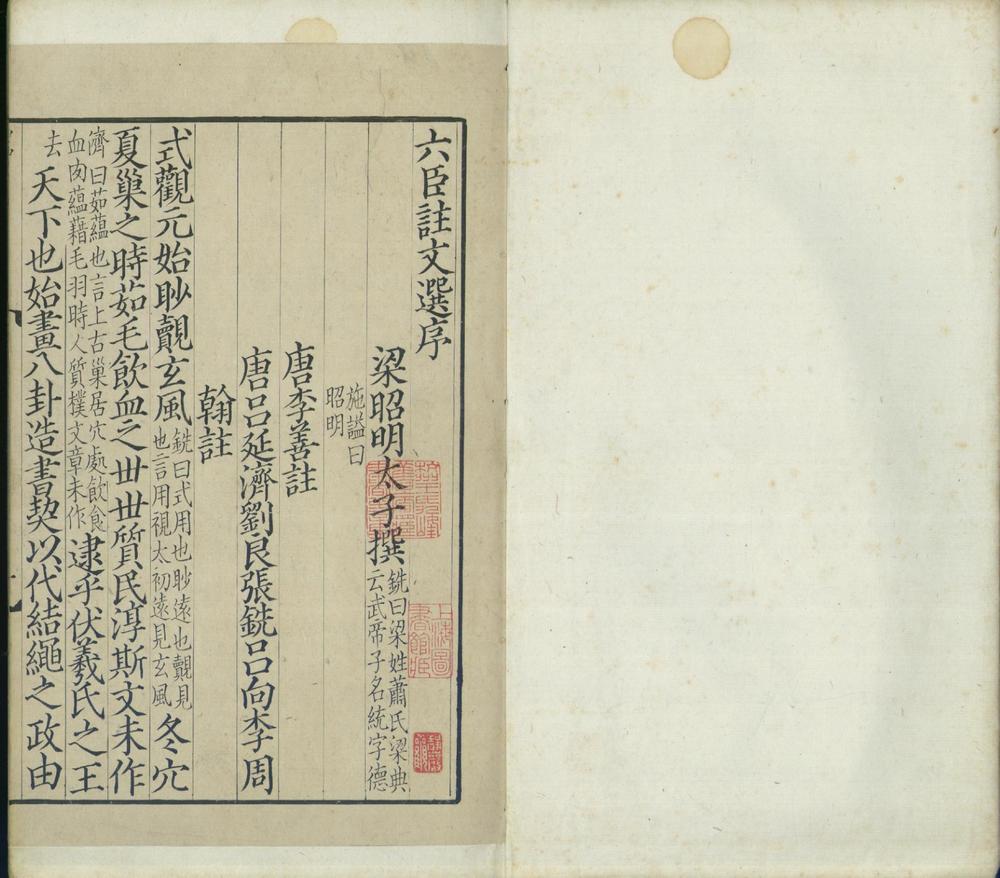 六臣註文選序
梁昭明太子撰銑曰梁姓蕭氏梁典
云武帝子名統字德
施謚曰
昭明
唐李善註
唐呂延濟劉良張銑呂向李周
翰註
式觀元始眇覿玄風銑曰式用也眇遠也覿見
也言用視太初遠見玄風冬穴
夏巢之時茹毛飲血之世世質民淳斯文未作
濟曰茹蘊也言上古巢居穴處飲食
血肉蘊藉毛羽時人質樸文章未作逮乎伏羲氏之王
去天下也始畫八卦造書契以代結繩之政由
上海圖書館藏